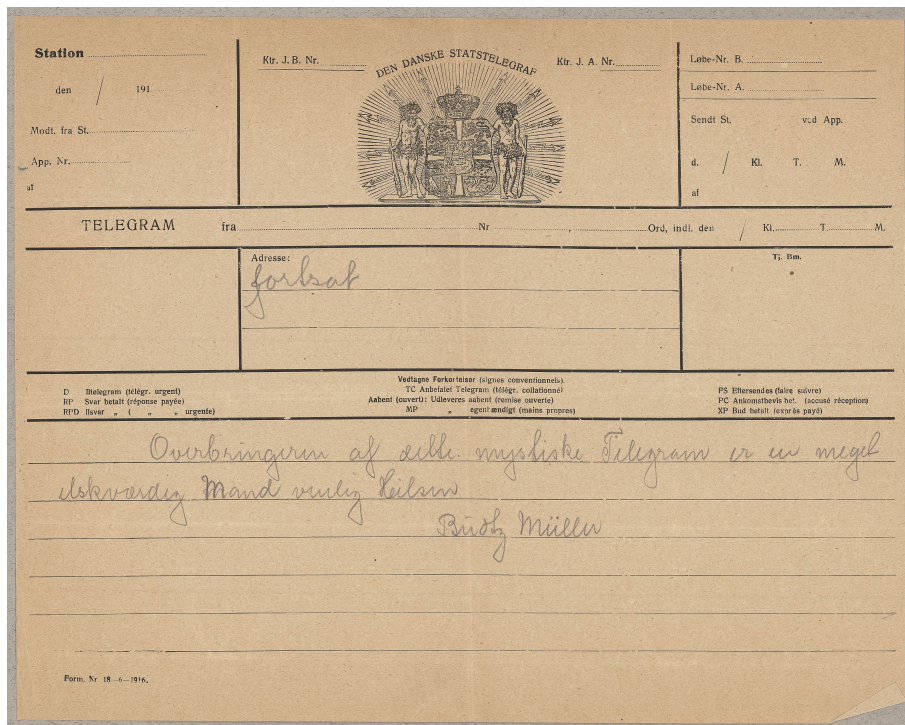 Station
den / 191
Modt. fra St.
App. Nr.
af
Ktr. J. B. Nr.
DEN DANSKE STATSTELEGRAF
Ktr. J. A. Nr.
Løbe-Nr. B.
Løbe-Nr. A.
Sendt St. ved App.
d. / Kl. T. M.
af
TELEGRAM fra Nr , Ord, indl. den / Kl. T. M.
Adresse:
fortsat
Tj. Bm.
Vedtagne Forkortelser (signes conventionnels).
D Iltelegram (télégr. urgent)
RP Svar betalt (réponse payée)
RPD Ilsvar „ ( „ „ urgente)
TC Anbefalet Telegram (télégr. collationné)
Aabent (ouvert): Udleveres aabent (remise ouverte)
MP „ egenhændigt (mains propres)
FS Eftersendes (faire suivre)
PC Ankomstbevis bet. (accusé réception)
XP Bud betalt (exprès payé)
Overbringeren af dette. mystiske Telegram er en meget
elskværdig Mand venlig Hilsen
Budtz Müller
Form. Nr 18 -6-1916.